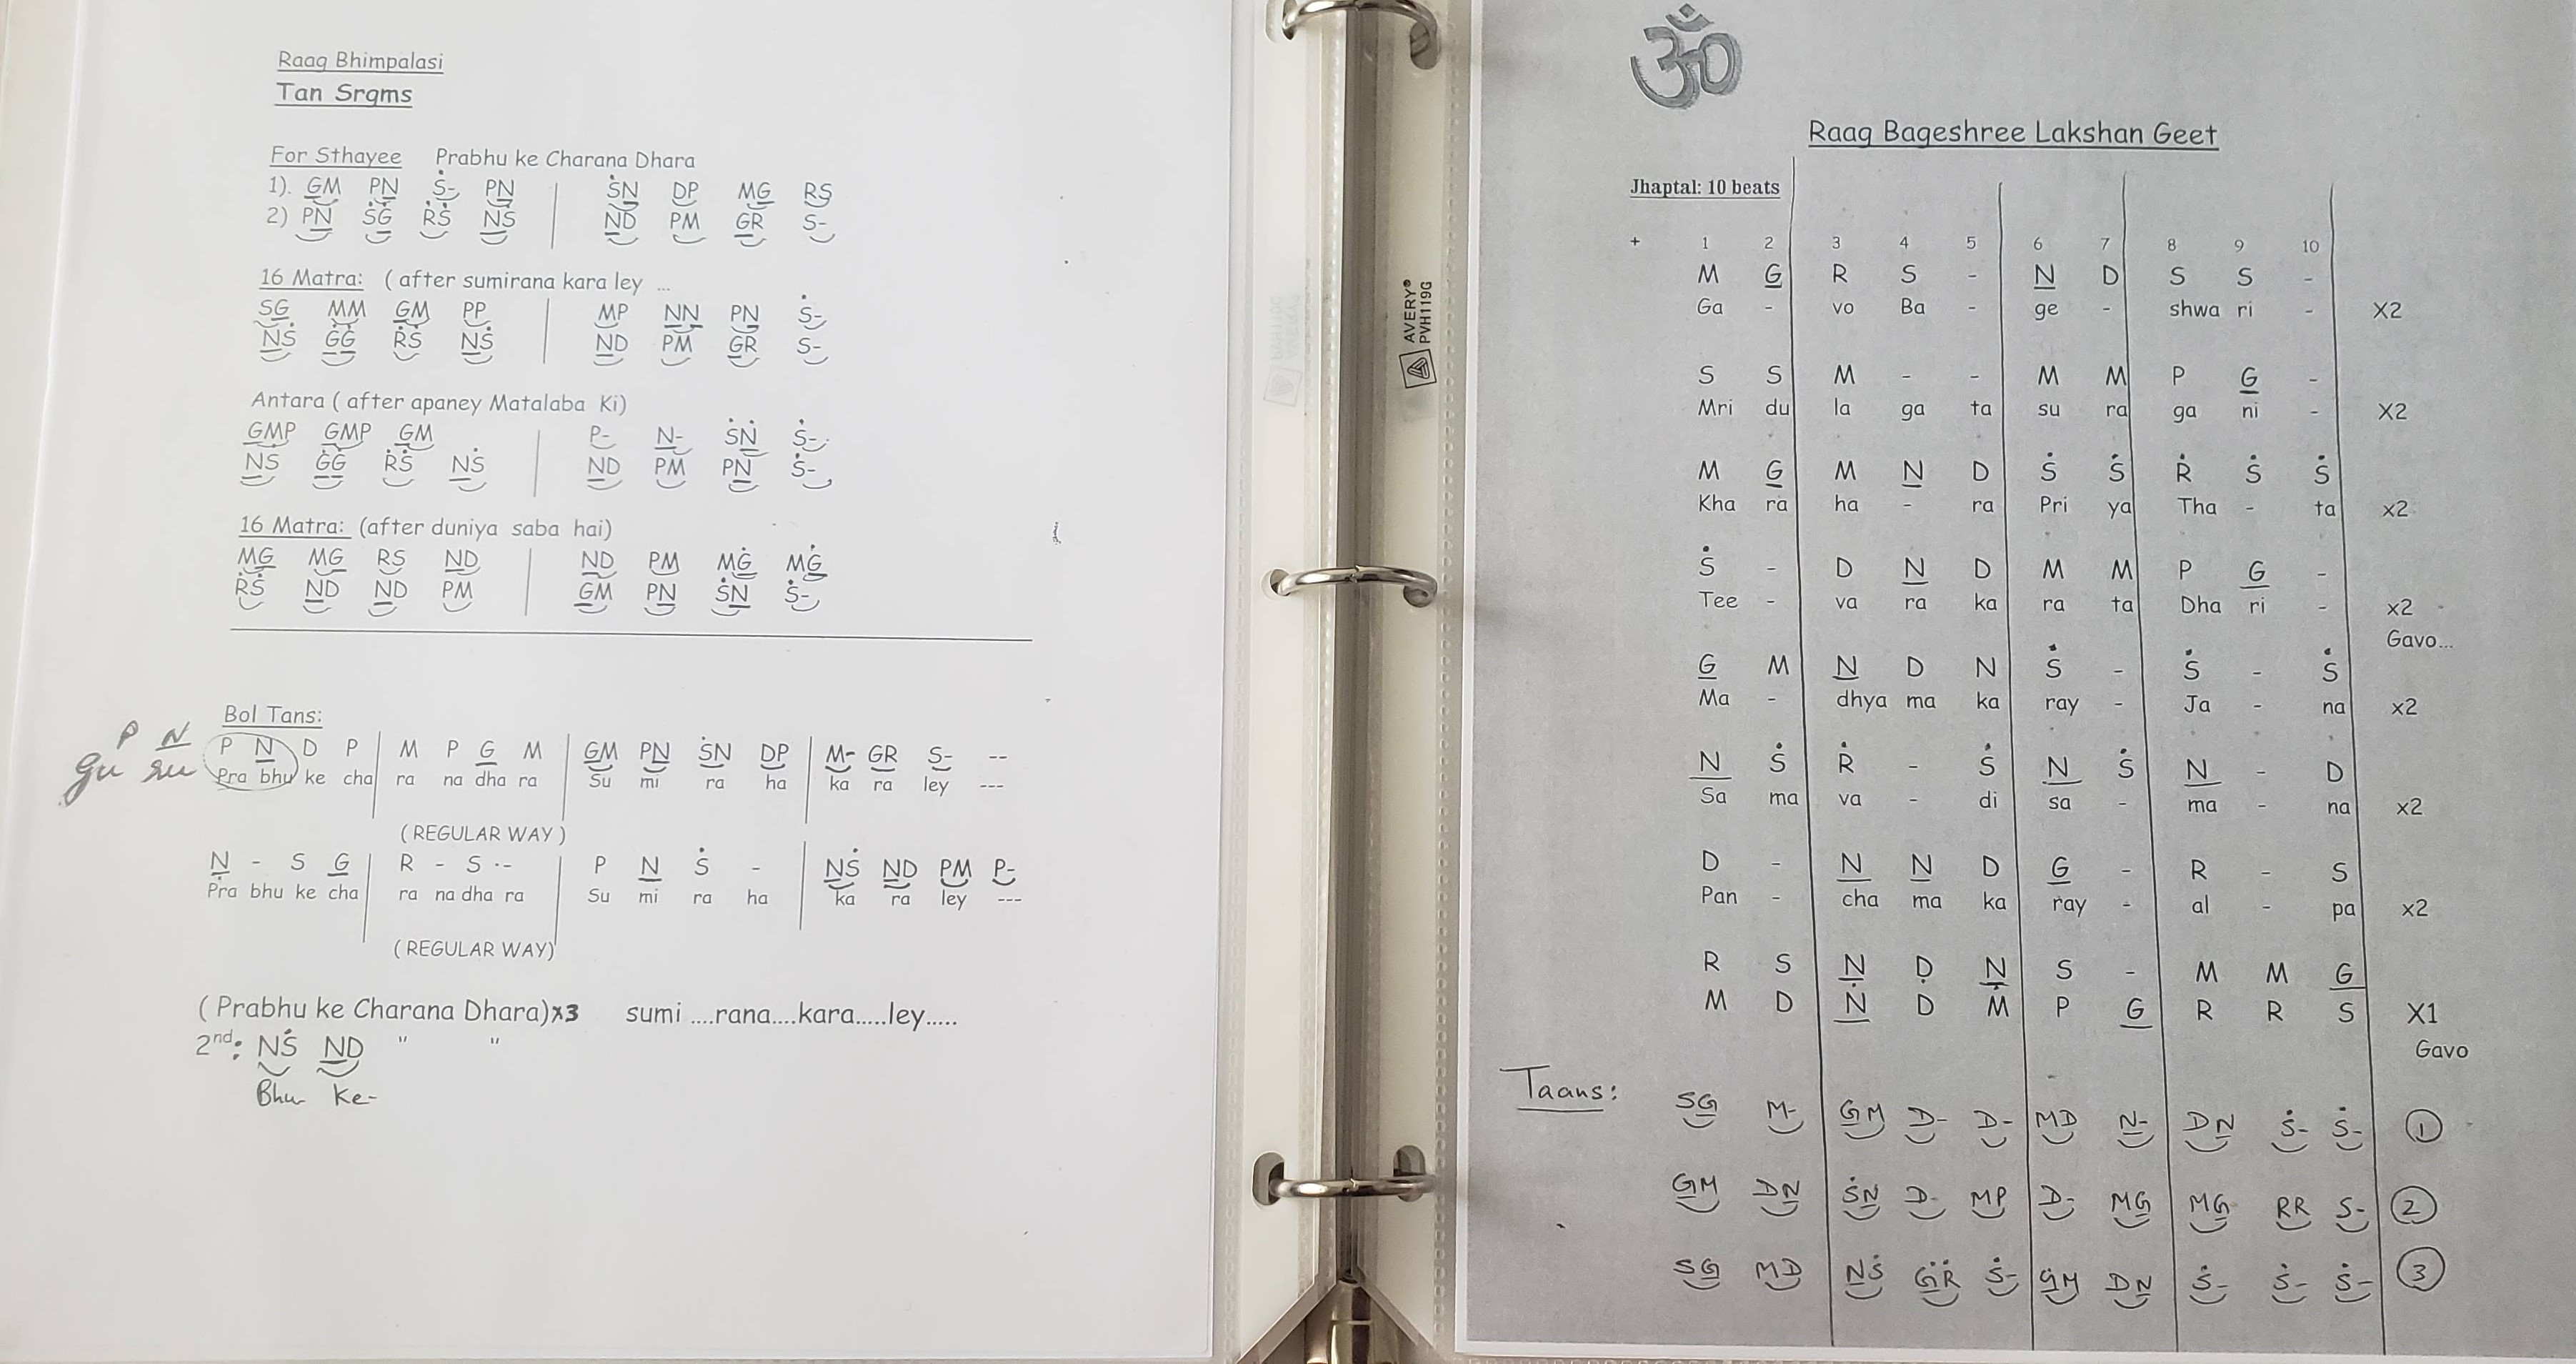 Raag Bhimpalasi
Tan Srgms
For Sthayee Prabhu ke Charana Dhara
1). G̲M PN̲ Ṡ- PN̲ | ṠN̲ DP MG̲ RS
2) PN̲ ṠĠ̲ ṘṠ N̲Ṡ | N̲D PM G̲R S-
16 Matra: ( after sumirana kara ley ...
SG̲ MM G̲M PP | MP N̲N̲ PN̲ Ṡ-
N̲Ṡ Ġ̲Ġ̲ ṘṠ N̲Ṡ | N̲D PM G̲R S-
Antara ( after apaney Matalaba Ki)
G̲MP G̲MP G̲M | P- N̲- ṠN̲ Ṡ-
N̲Ṡ Ġ̲Ġ̲ ṘṠ N̲Ṡ | N̲D PM PN̲ Ṡ-
16 Matra: (after duniya saba hai)
MG̲ MG̲ RS N̲D | N̲D PM MĠ̲ MĠ̲
ṘṠ N̲D N̲D PM | G̲M PN̲ ṠN̲ Ṡ-
Bol Tans:
P N̲
gu ru
P N̲ D P | M P G̲ M | G̲M PN̲ ṠN̲ DP | M- GR S- --
Pra bhu ke cha ra na dha ra Su mi ra ha ka ra ley ---
( REGULAR WAY )
N̲ - S G̲ | R - S -- | P N̲ Ṡ - | N̲Ṡ N̲D PM P-
Pra bhu ke cha ra na dha ra Su mi ra ha ka ra ley ---
( REGULAR WAY)
( Prabhu ke Charana Dhara)x3 sumi ....rana....kara.....ley.....
2nd: NṠ N̲D " "
Bhu- ke-
AVERY®
PVH119G
ॐ
Raag Bageshree Lakshan Geet
Jhaptal: 10 beats
+ 1 2 3 4 5 6 7 8 9 10
M G̲ R S - N̲ D S S -
Ga - vo Ba - ge - shwa ri - X2
S S M - - M M P G̲ -
Mri du la ga ta su ra ga ni - X2
M G̲ M N̲ D Ṡ Ṡ Ṙ Ṡ Ṡ
Kha ra ha - ra Pri ya Tha - ta x2
Ṡ - D N̲ D M M P G̲ -
Tee - va ra ka ra ta Dha ri - x2
Gavo...
G̲ M N̲ D N Ṡ - Ṡ - Ṡ
Ma - dhya ma ka ray - Ja - na x2
N̲ Ṡ Ṙ - Ṡ N̲ Ṡ N̲ - D
Sa ma va - di sa - ma - na x2
D - N̲ N̲ D G̲ - R - S
Pan - cha ma ka ray - al - pa x2
R S Ṇ̲ Ḍ Ṇ̲ S - M M G̲
M D N̲ D M P G̲ R R S X1
Gavo
Taans:
SG̲ M- G̲M D- D- MD N̲- DN̲ Ṡ- Ṡ- 1
G̲M DN̲ ṠN̲ D- MP D- MG̲ MG̲ RR S- 2
SG̲ MD N̲Ṡ Ġ̲Ṙ Ṡ- G̲M DN̲ Ṡ- Ṡ- Ṡ- 3